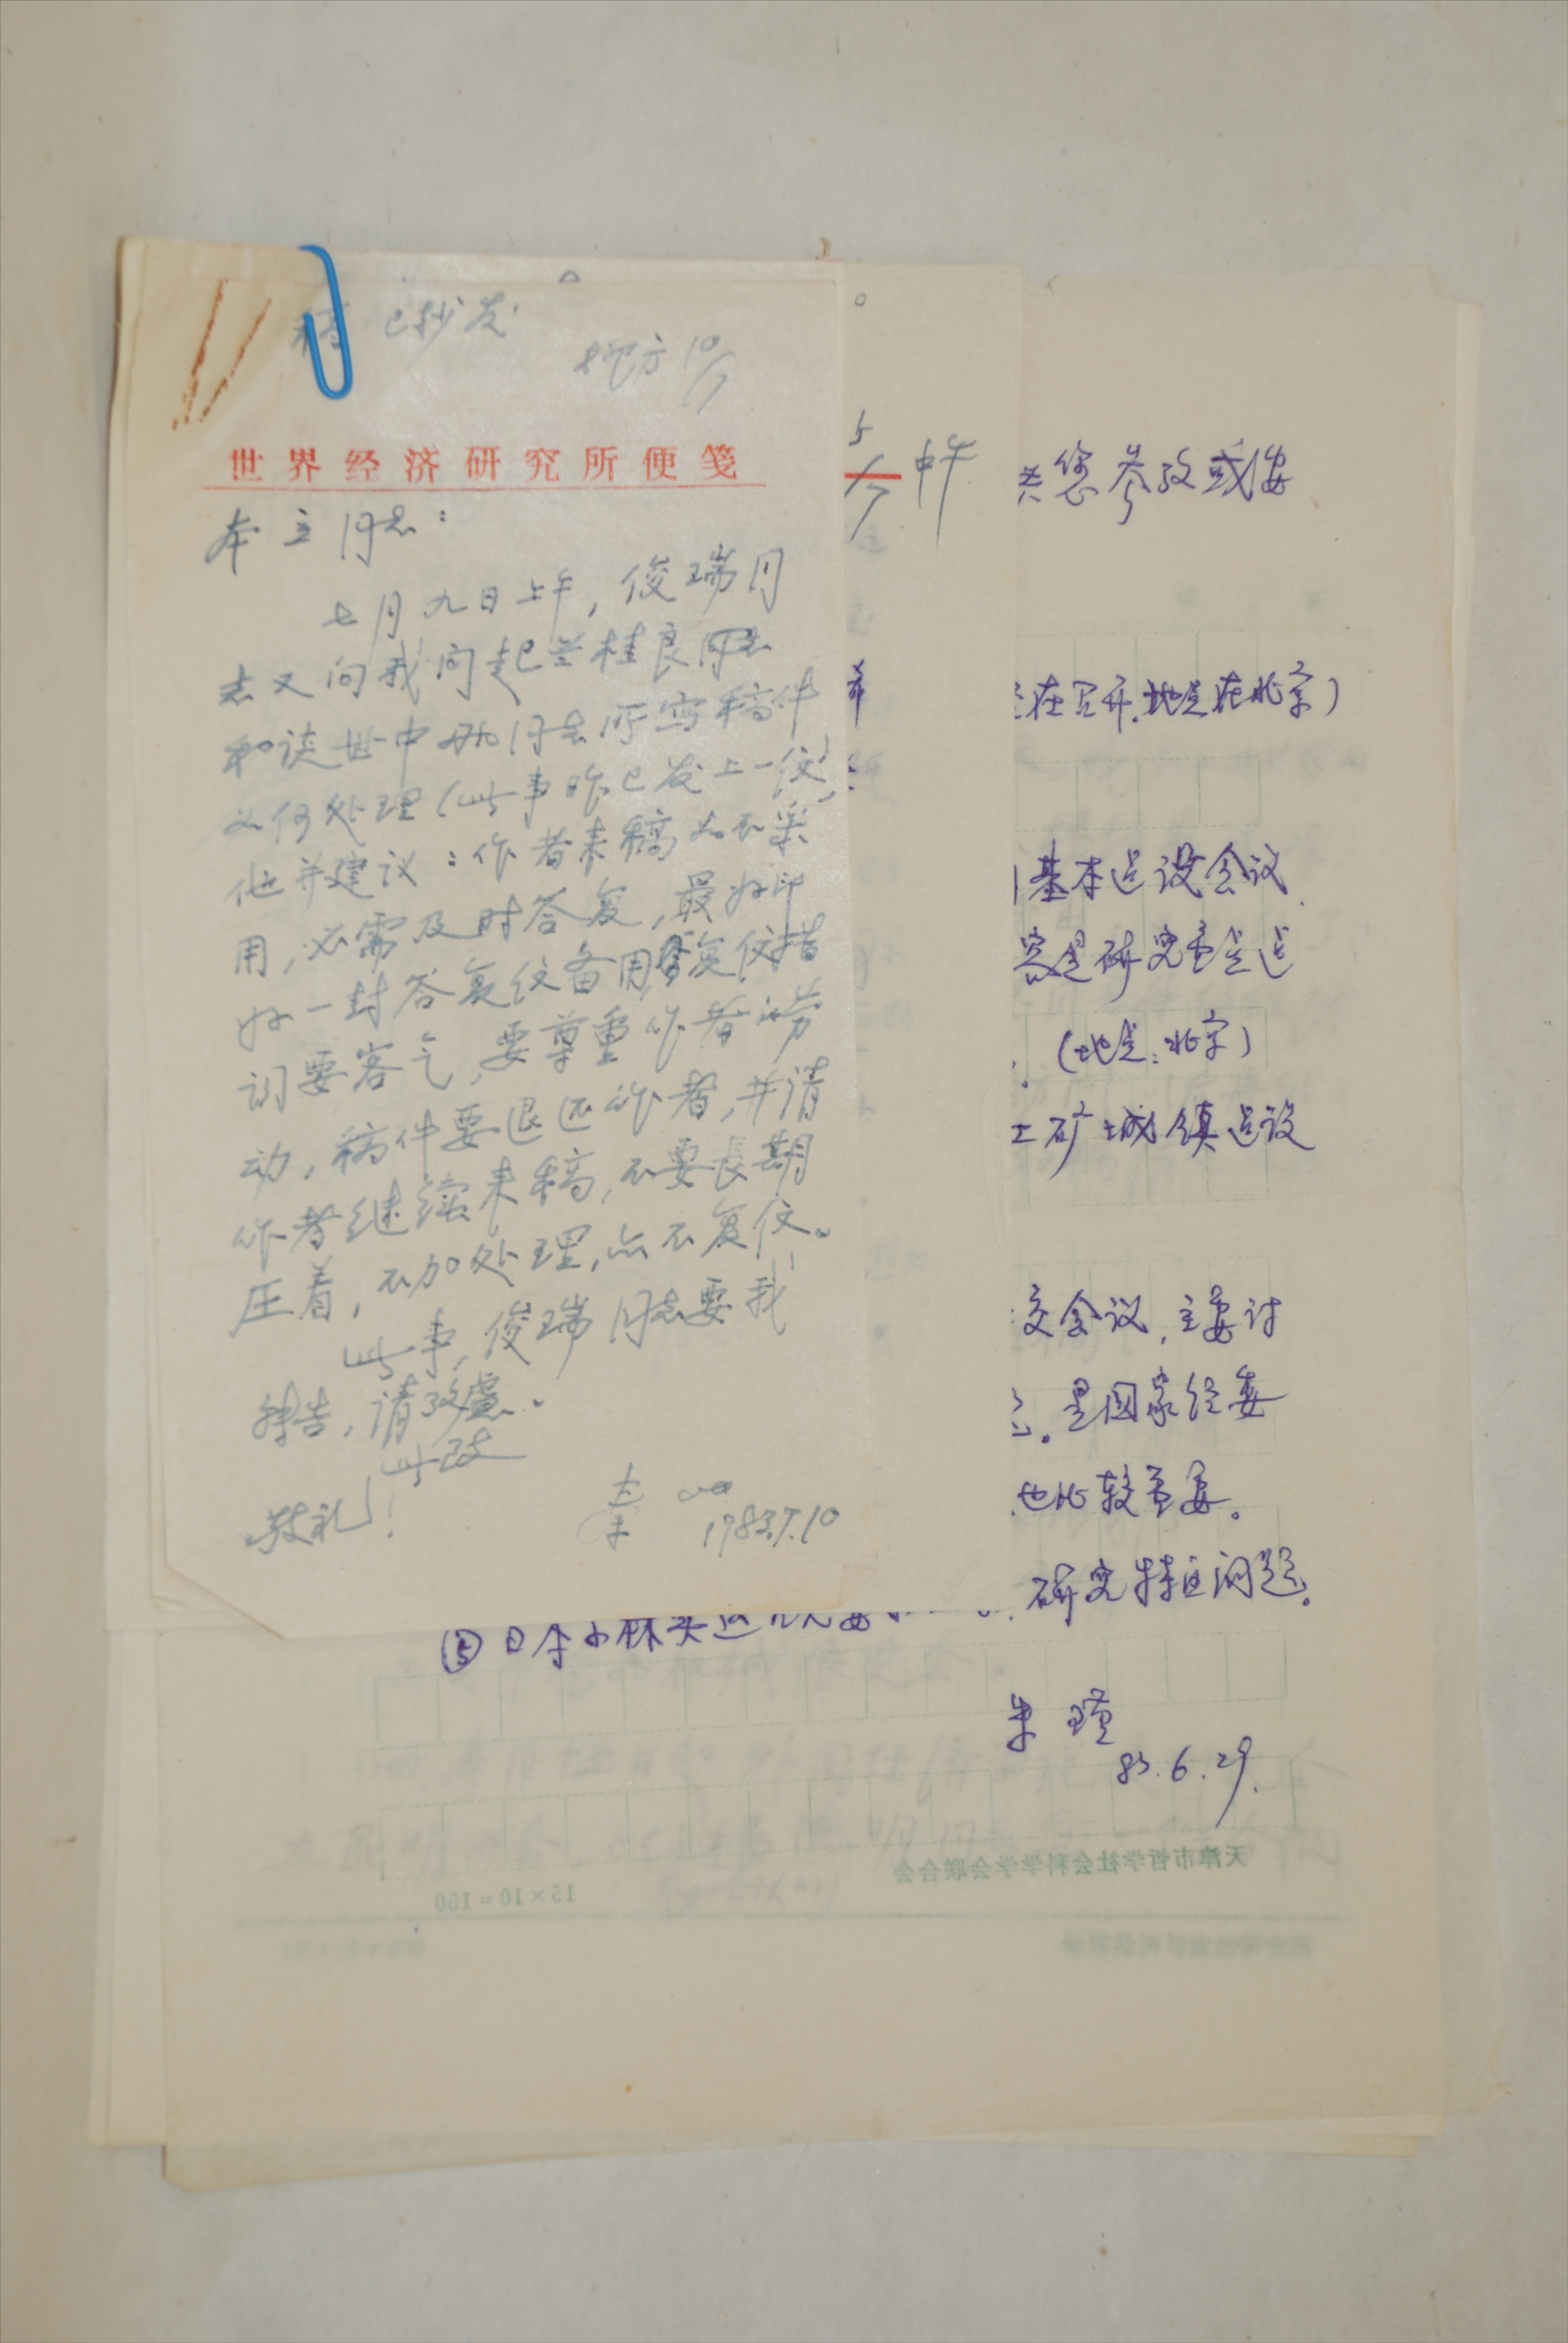 稿 已抄发
地方 10/7
世界经济研究所便笺
本立同志：
七月九日上午，俊瑞同
志又向我问起兰桂良同志
和谈世中 同志所写稿件
如何处理（此事昨已发上一信），
他并建议：作者来稿如不采
用，必需及时答复，最好印
好一封答复信备用，答复信措
词要客气，要尊重作者的劳
动，稿件要退还作者，并请
作者继续来稿，不要長期
压着，不加处理，亦不复信。
此事，俊瑞同志要我
转告，请考慮。
此致
敬礼！
秦
1983.7.10
5/7 中午
供您参考或安
在召开.地点在北京）
基本建设会议.
容是研究重点建
.（地点：北京）
工矿城镇建设
交会议，主要讨
。是国家经委
也比较重要。
研究特区问题。
⑤日本小林实
朱 瑾
83.6.29.
天津市哲学社会科学学会联合会
15×10=150